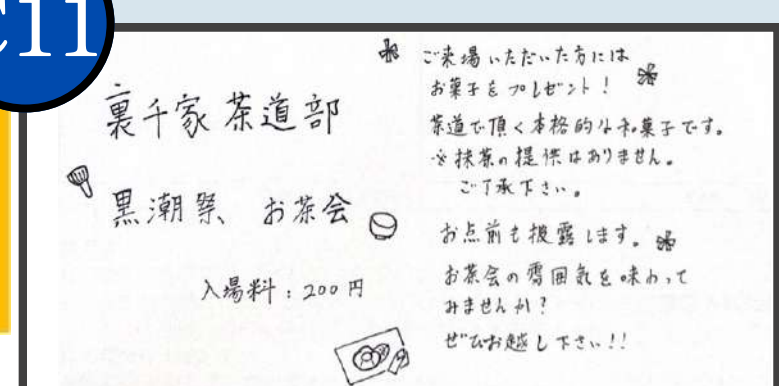 C11
裏千家 茶道部
黒潮祭 お茶会
入場料：200円
ご来場いただいた方には
お菓子をプレゼント！
茶道で頂く本格的な和菓子です。
※抹茶の提供はありません。
ご了承下さい。
お点前も披露します。
お茶会の雰囲気を味わって
みませんか？
ぜひお越し下さい!!